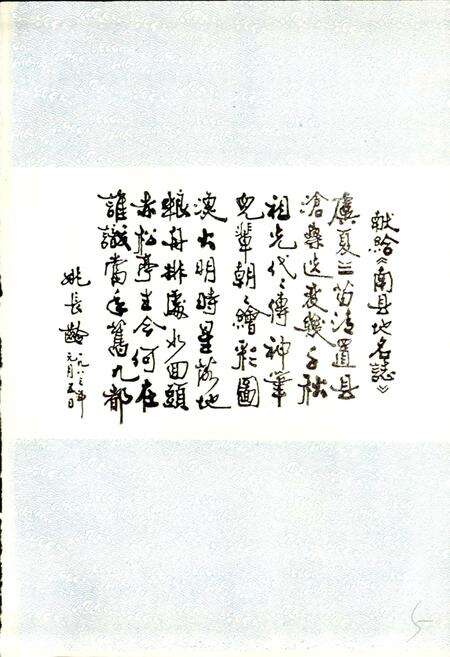 献给《南县地名誌》
虞夏三苗清置县
沧桑迭变几千秋
祖先代々傳神筆
兒輩朝々繪彩圖
渔火明時星落地
粮舟排處水回頭
赤松亭子今何在
誰識當年舊九都
姚長龄
一九八三年
元月五日
5